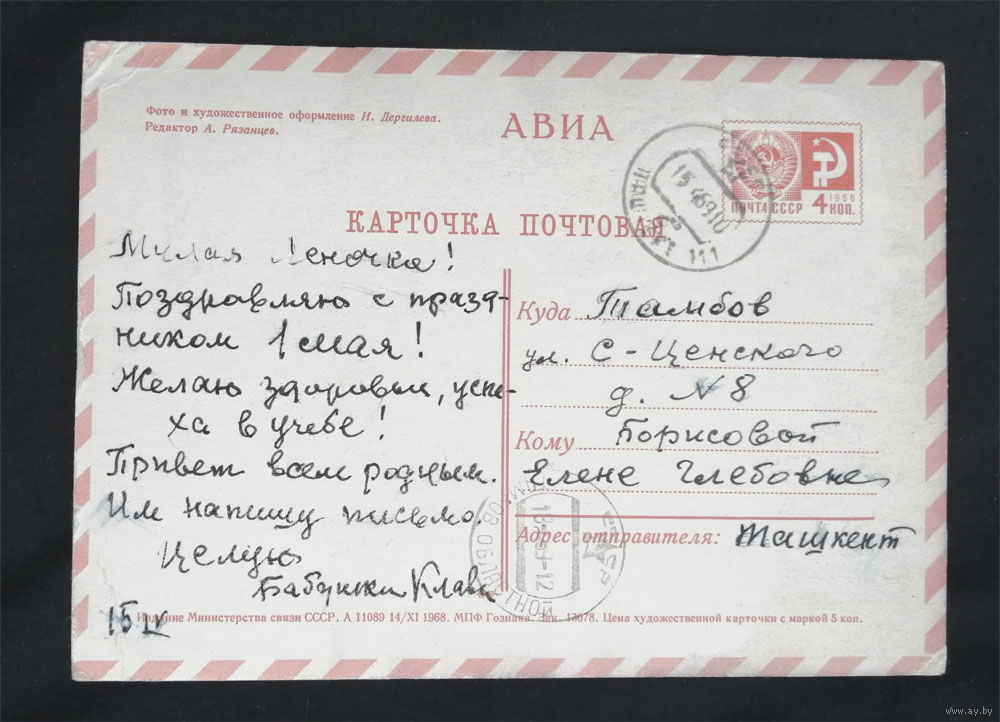 Фото и художественное оформление И. Дергилева.
Редактор А. Рязанцев.
АВИА
ПОЧТА СССР
1966
4 КОП.
КАРТОЧКА ПОЧТОВАЯ
Милая Леночка!
Поздравляю с празд-
ником 1 мая!
Желаю здоровья, успе-
ха в учебе!
Привет всем родным.
Им напишу письмо.
Целую
Бабушка Клава
15 IV
Куда Тамбов
ул. С-Ценского
д. №8
Кому Борисовой
Елене Глебовне
Адрес отправителя: Ташкент
Издание Министерства связи СССР. А 11089 14/XI 1968. МПФ Гознака. Зак. 13078. Цена художественной карточки с маркой 5 коп.
www.ay.by